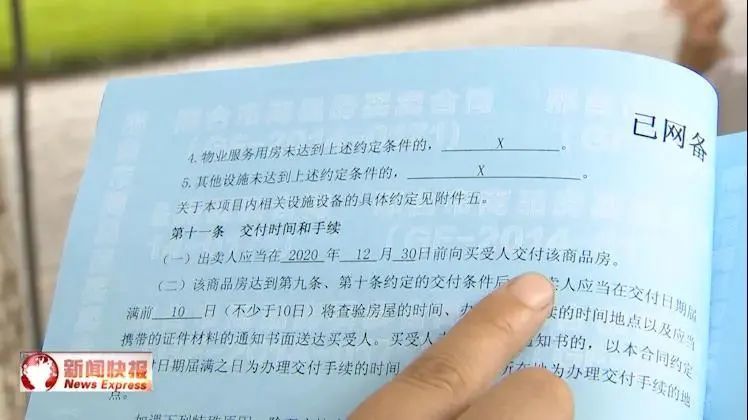 已网备
4.物业服务用房未达到上述约定条件的,X。
5.其他设施未达到上述约定条件的,X。
关于本项目内相关设施设备的具体约定见附件五。
第十一条 交付时间和手续
(一)出卖人应当在2020年12月30日前向买受人交付该商品房。
(二)该商品房达到第九条、第十条约定的交付条件后 卖人应当在交付日期届
满前10日(不少于10日)将查验房屋的时间、办 续的时间地点以及应当
携带的证件材料的通知书面送达买受人。买受人 通知书的,以本合同约定
付日期届满之日为办理交付手续的时间, 所在地为办理交付手续的地
点。
新闻快报
News Express